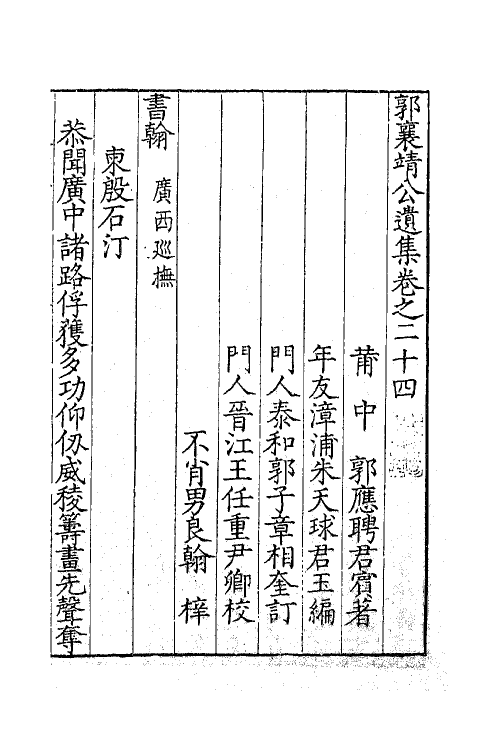 郭襄靖公遺集卷之二十四
莆中　郭應聘君賓著
年友漳浦朱天球君玉編
門人泰和郭子章相奎訂
門人晉江王任重尹卿校
不肖男良翰　梓
書翰　廣西廵撫
柬殷石汀
恭聞廣中諸路俘獲多功仰仭威稜籌畫先聲奪